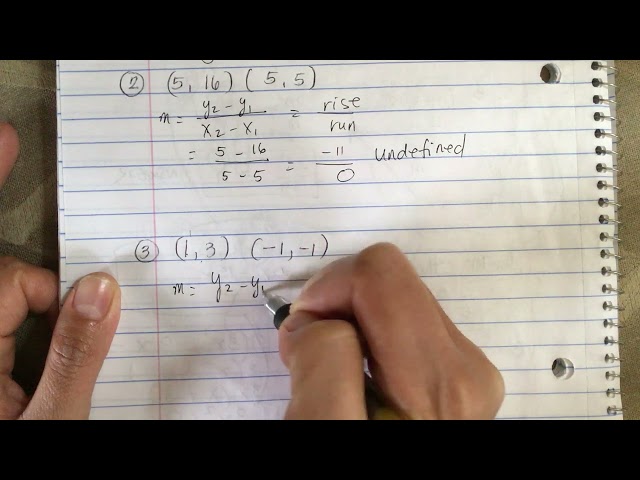 ② (5, 16) (5, 5)
m = y₂ - y₁ / x₂ - x₁ = rise / run
= 5 - 16 / 5 - 5 = -11 / 0 undefined
③ (1, 3) (-1, -1)
m = y₂ - y₁